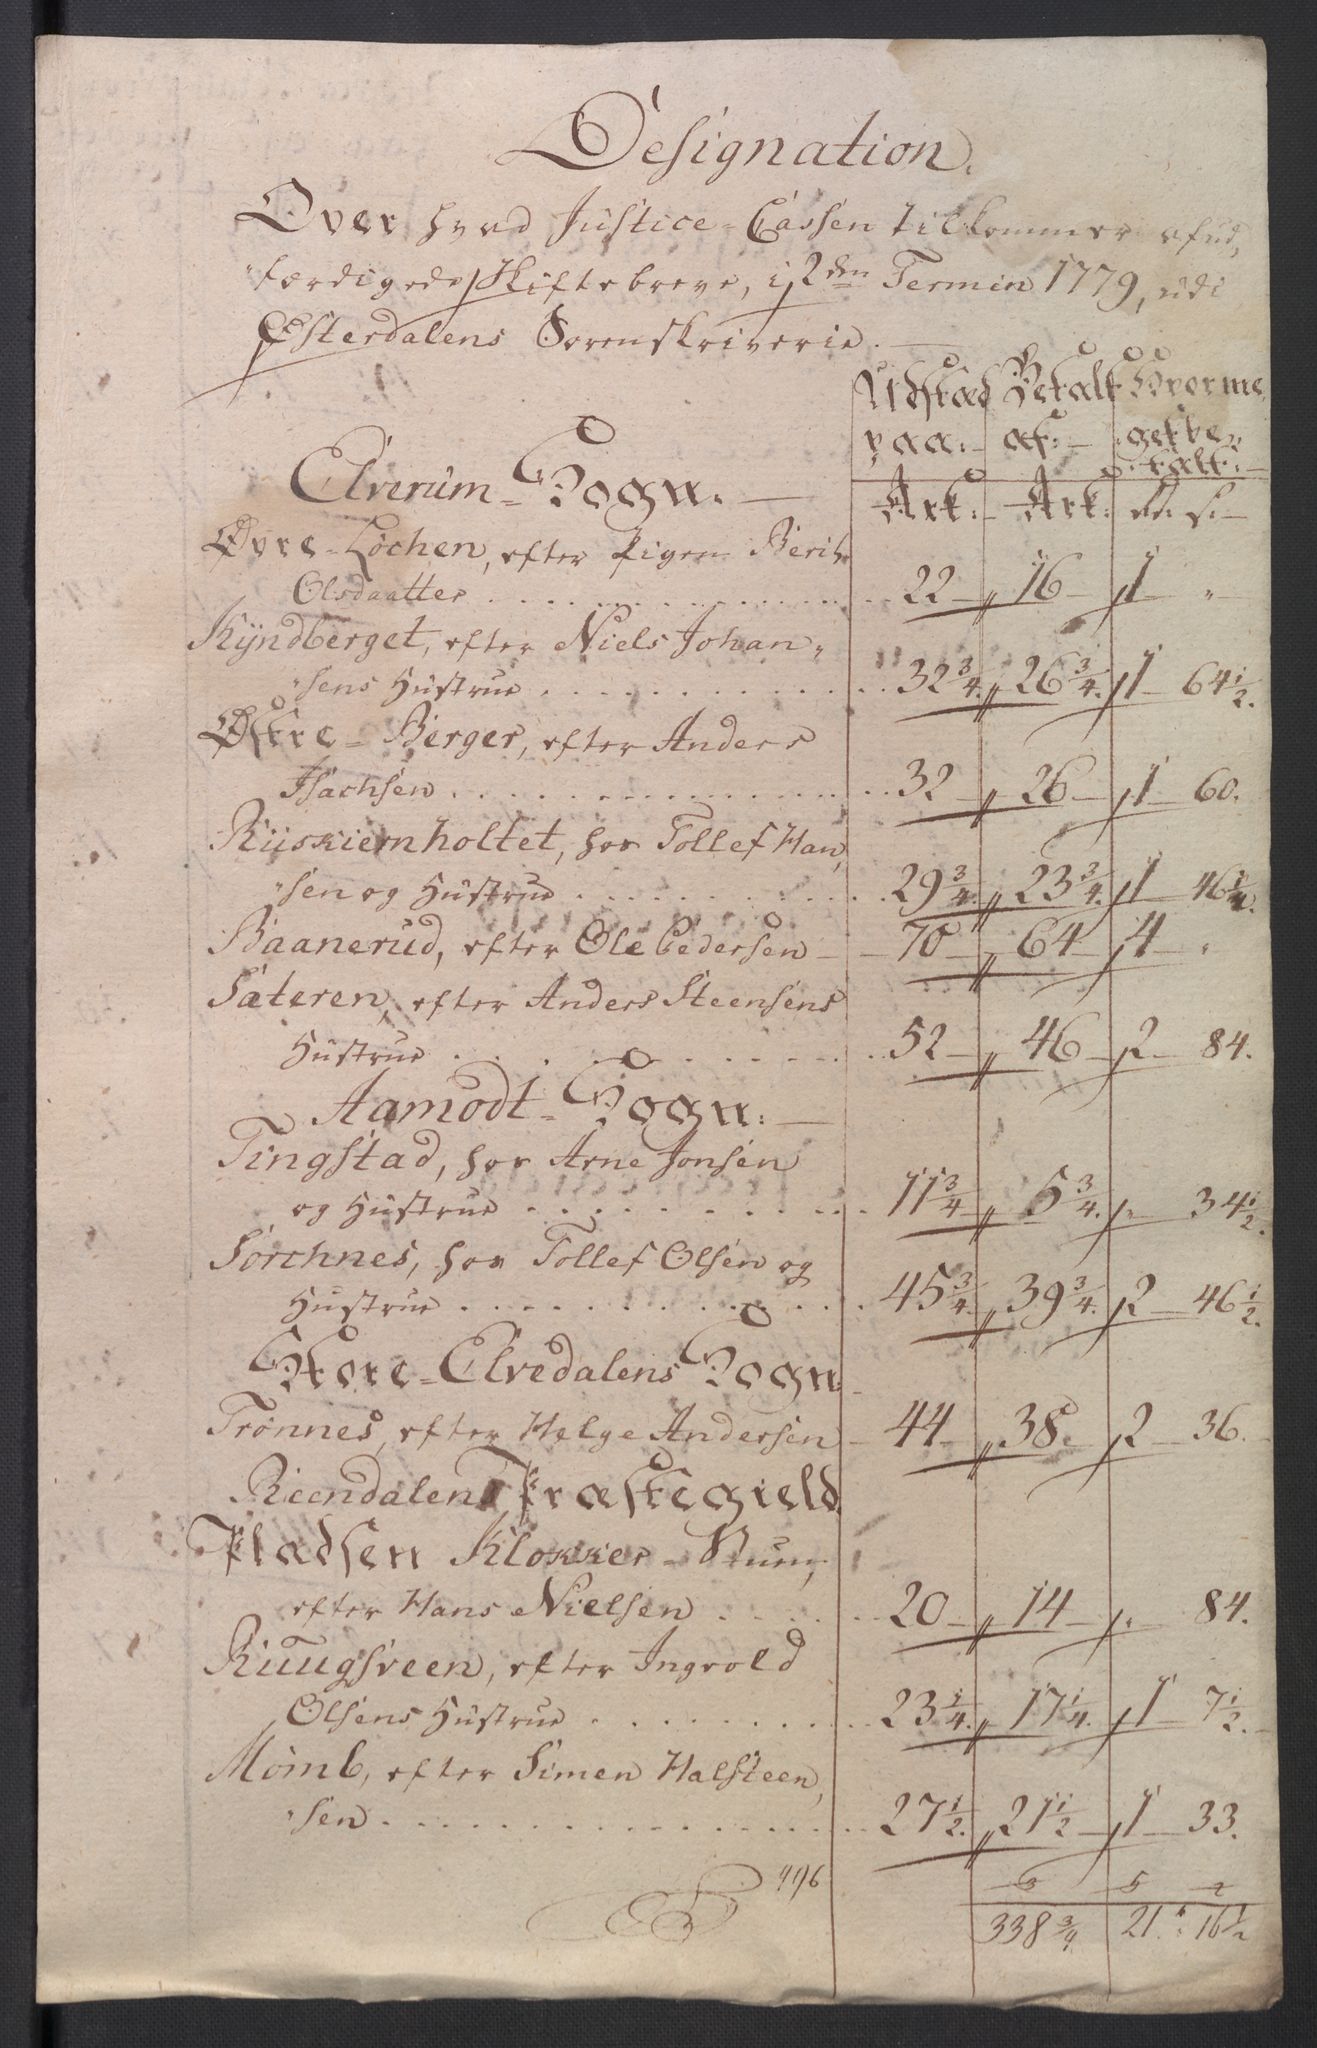 Designation.
Over hvad Justice-Cassen tilkommer af ud,
"færdigede Skiftebreve, i 2den Termin 1779, udi
Østerdalens Sorenskriverie.
Udstæd Betalt Hvorme
paa: af: get be
talt:
Elverum-Sogn. Ark: Ark: rd: s:
Øvre-Løchen, efter Pigen Berit
Olsdaatter 22 16 1 "
Kÿndberget, efter Niels Johan"
"sens Hustrue 32 3/4 26 3/4 1 64 1/2
Østre-Berger, efter Anders
Isachsen 32 26 1 60.
Riiskiernholtet, hos Tollef Han,
"sen og Hustrue 29 3/4 23 3/4 1 46 1/2
Baanerud, efter Ole Pedersen 70 64 4 "
Sæteren, efter Anders Steensens
Hustrue 52 46 2 84.
Aamodt-Sogn:
Tingstad, hos Arne Jonsen
og Hustrue 11 3/4 5 3/4 " 34 1/2
Sørchnes, hos Tollef Olsen og
Hustrue 45 3/4 39 3/4 2 46 1/2
Store-Elvedalens Sogn
Trønnes, efter Helge Andersen 44 38 2 36.
Reendalens Præstegield
Pladsen Klokker-Ruun,
efter Hans Nielsen 20 14 " 84.
Ruugsveen, efter Ingvold
Olsens Hustrue 23 1/4 17 1/4 1 7 1/2
Mømb, efter Simen Halsteen,
"sen 27 1/2 21 1/2 1 33.
496
338 3/4 21 16 1/2